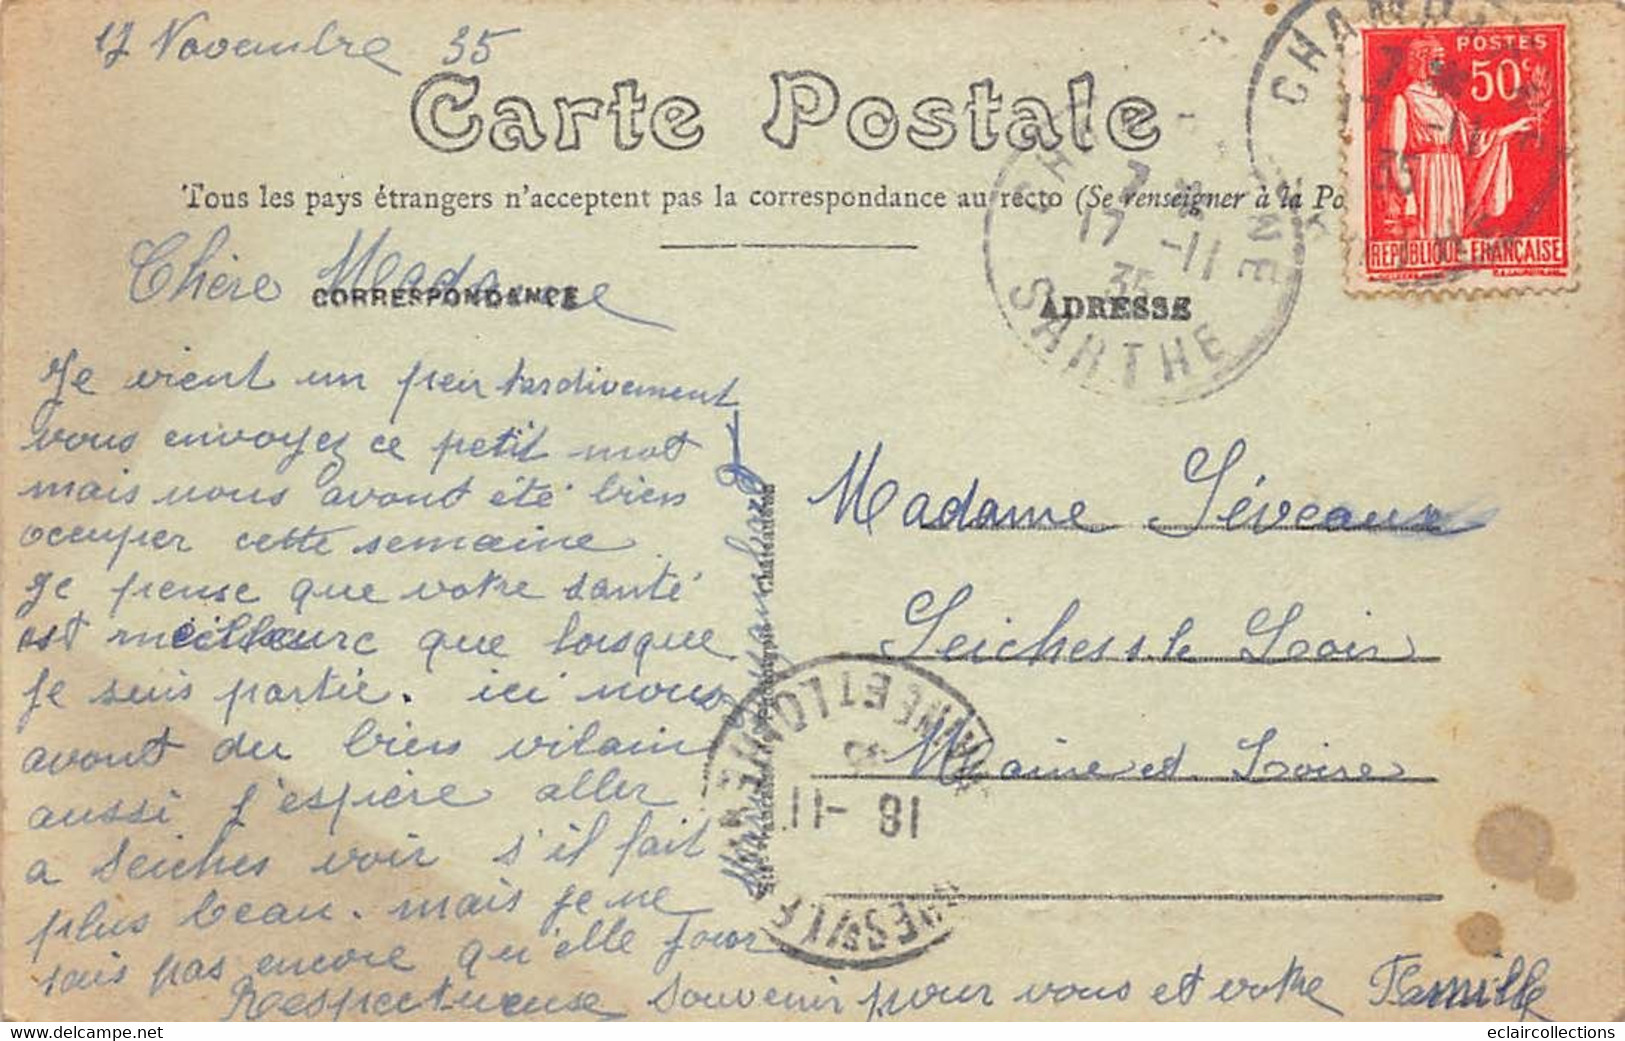 17 Novembre 35
Carte Postale
Tous les pays étrangers n'acceptent pas la correspondance au recto (Se renseigner à la Po
CORRESPONDANCE
ADRESSE
POSTES
50c
REPUBLIQUE-FRANÇAISE
17 -11
35
SARTHE
Chère Madame
Je vient un peu tardivement
vous envoyez ce petit mot
mais nous avont été bien
occuper cette semaine
Je pense que votre santé
est meilleure que lorsque
Je suis partie. ici nous
avont du bien vilain
aussi J'espère aller
a Seiches voir s'il fait
plus beau. mais je ne
sais pas encore qu'elle Jour
Respectueuse Souvenir pour vous et votre Famille
Madame Séveaux
Seiches s le Loir
Maine et Loire
18 -11
eclaircollections